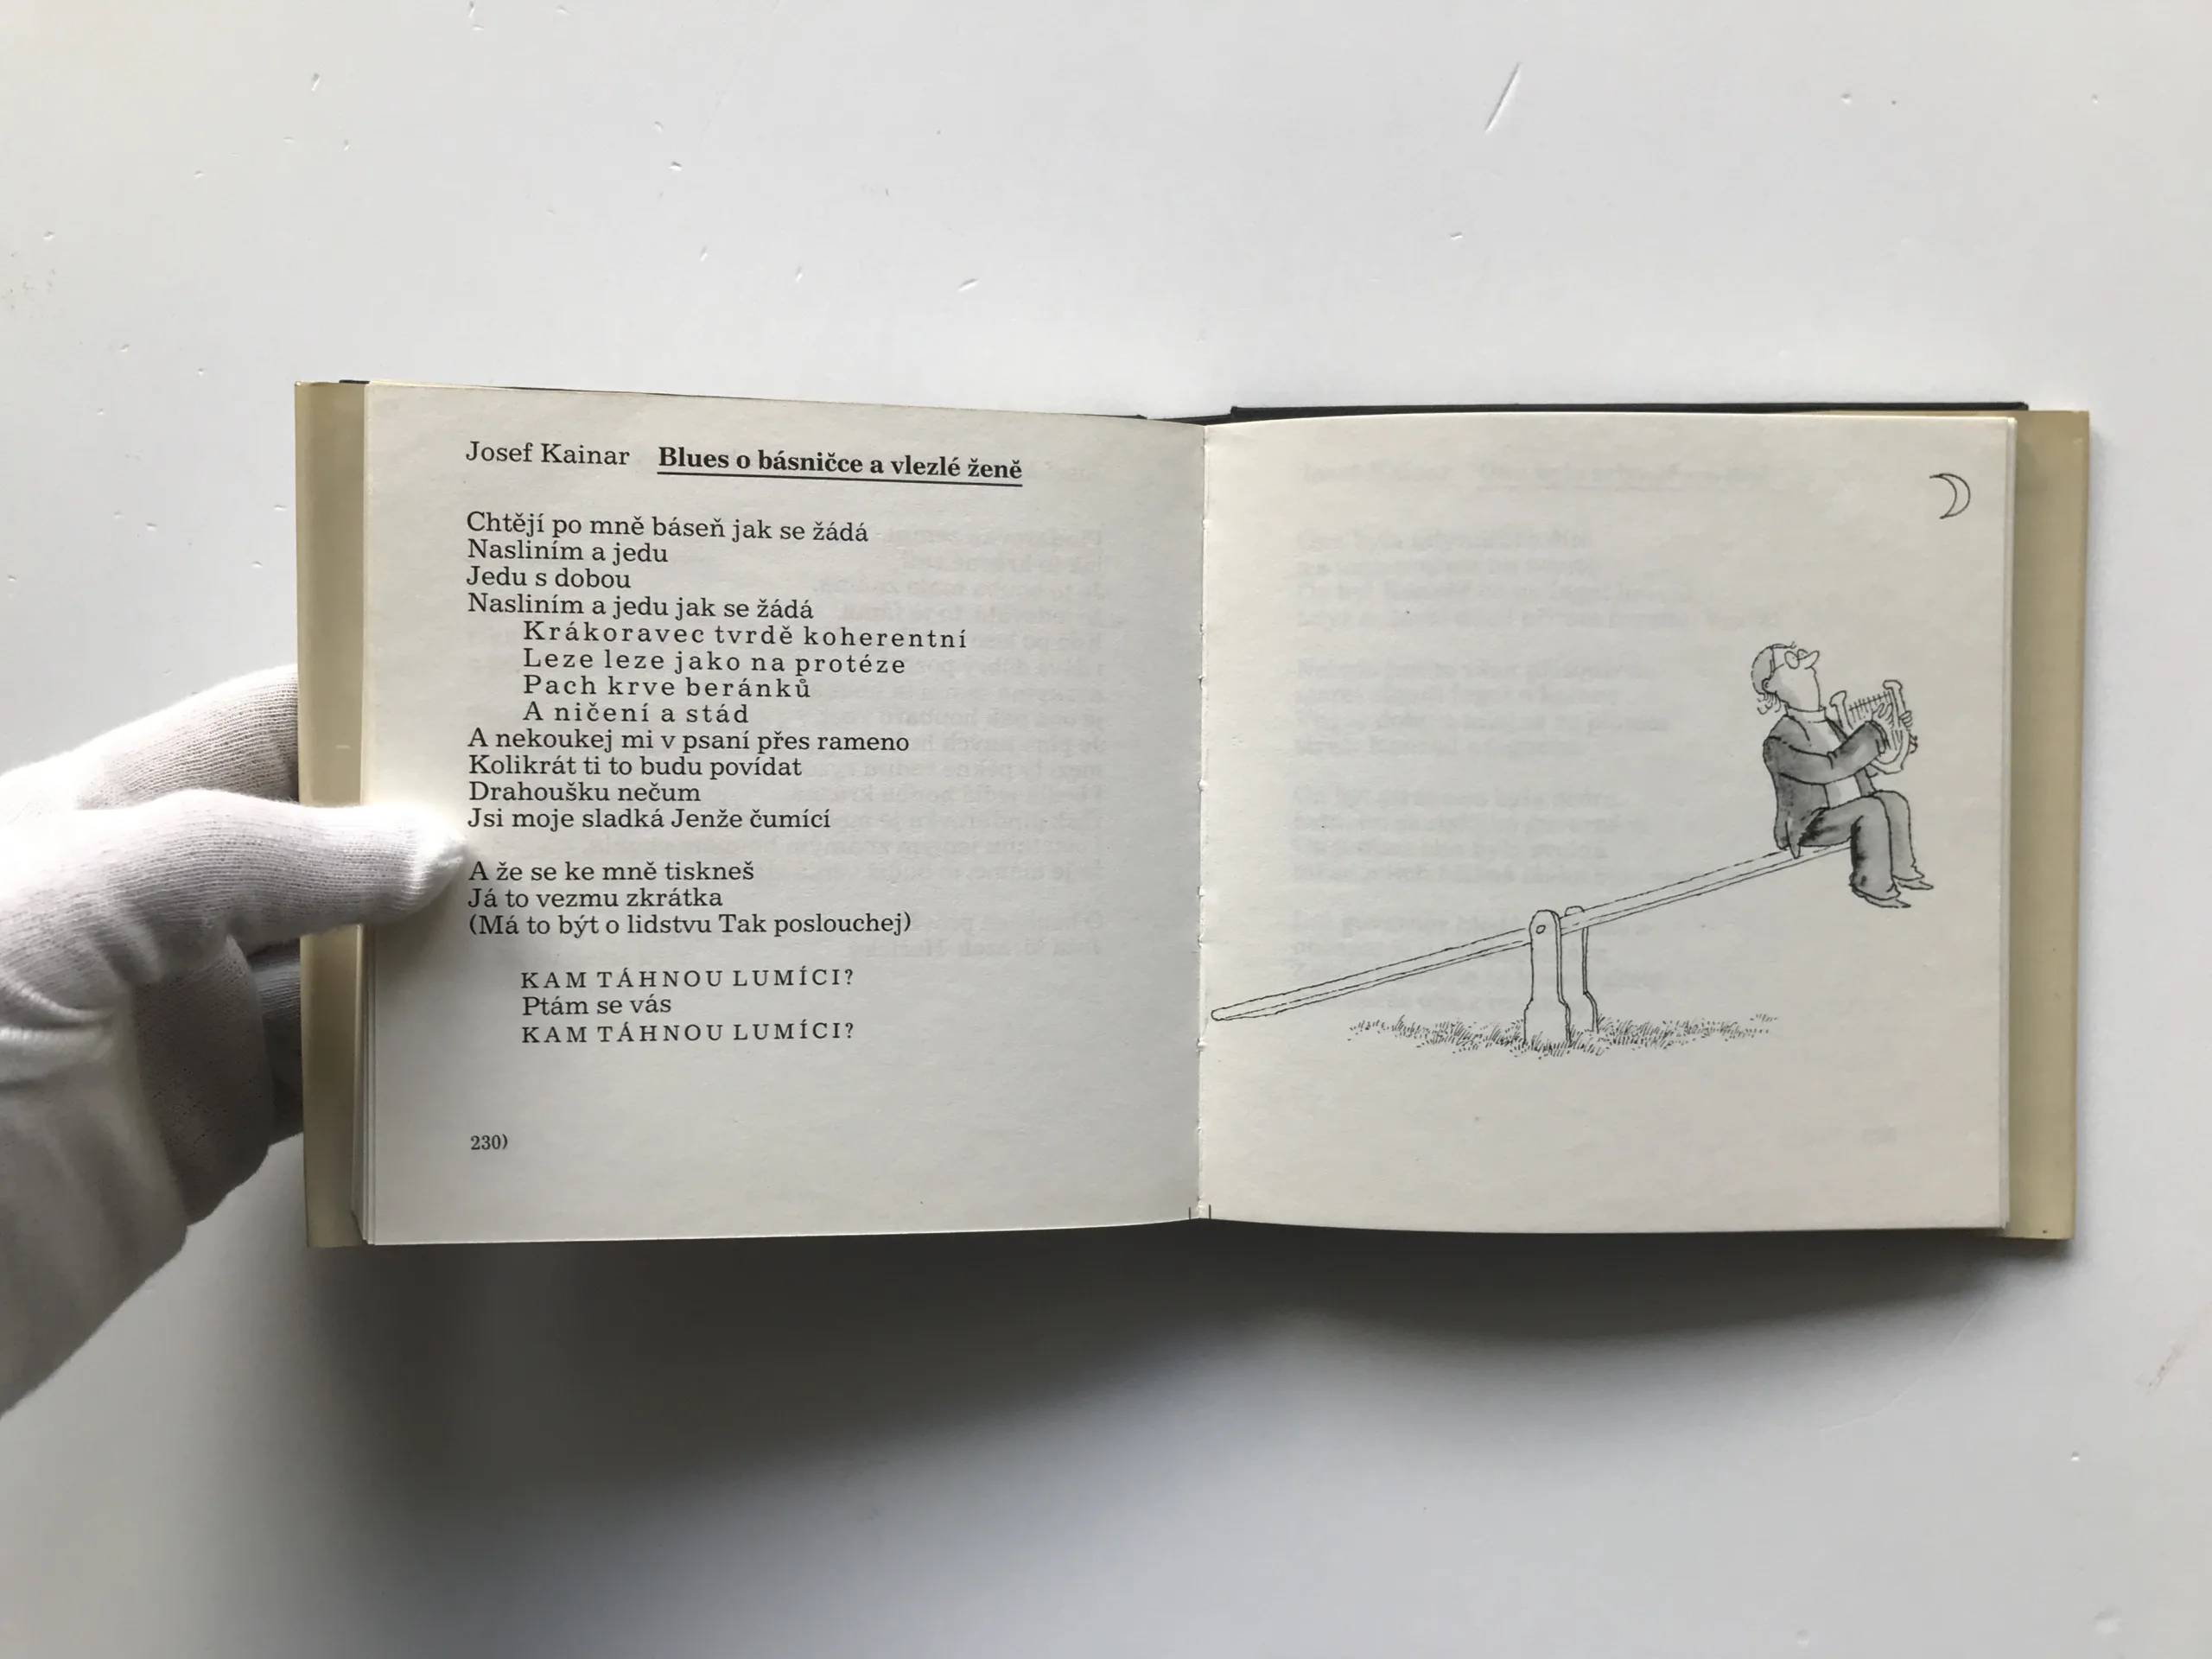 Josef Kainar Blues o básničce a vlezlé ženě
Chtějí po mně báseň jak se žádá
Nasliním a jedu
Jedu s dobou
Nasliním a jedu jak se žádá
Krákoravec tvrdě koherentní
Leze leze jako na protéze
Pach krve beránků
A ničení a stád
A nekoukej mi v psaní přes rameno
Kolikrát ti to budu povídat
Drahoušku nečum
Jsi moje sladká Jenže čumící
A že se ke mně tiskneš
Já to vezmu zkrátka
(Má to být o lidstvu Tak poslouchej)
KAM TÁHNOU LUMÍCI?
Ptám se vás
KAM TÁHNOU LUMÍCI?
230)